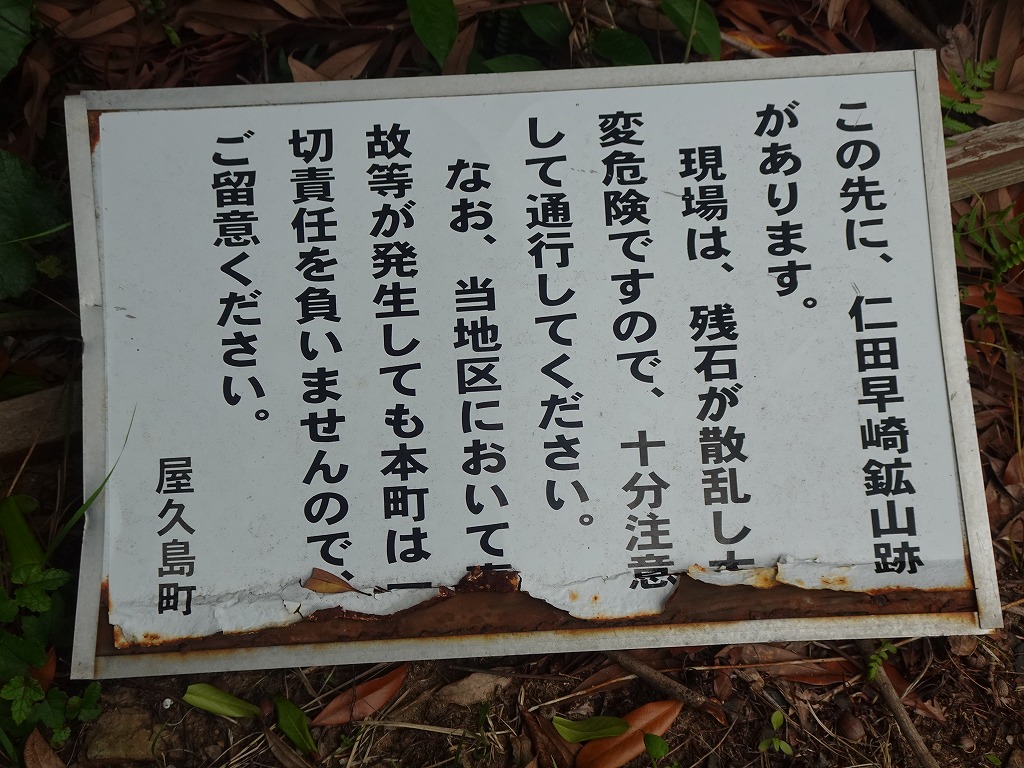 この先に、仁田早崎鉱山跡
があります。
現場は、残石が散乱し大
変危険ですので、十分注意
して通行してください。
なお、当地区において事
故等が発生しても本町は一
切責任を負いませんので、
ご留意ください。
屋久島町